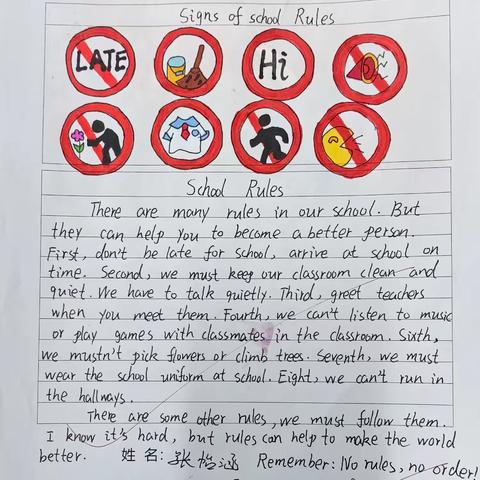 Signs of school Rules
LATE
Hi
School Rules
There are many rules in our school. But
they can help you to become a better person.
First, don't be late for school, arrive at school on
time. Second, we must keep our classroom clean and
quiet. We have to talk quietly. Third, greet teachers
when you meet them. Fourth, we can't listen to music
or play games with classmates in the classroom. Sixth,
we mustn't pick flowers or climb trees. Seventh, we must
wear the school uniform at school. Eight, we can't run in
the hallways.
There are some other rules, we must follow them.
I know it's hard, but rules can help to make the world
better. 姓名: 张 涵 Remember: No rules, no order!